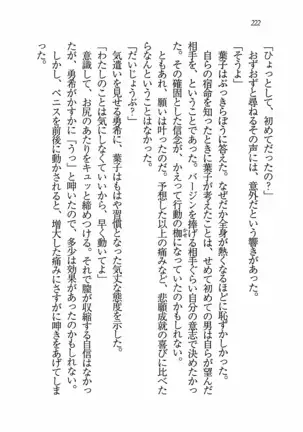 222
「ひょっとして、初めてだったの？」
おずおずと尋ねるその声には、意外だという響きがあった。
「そうよ」
葉子はぶっきらぼうに答えた。なぜだか全身が熱くなるほどに恥ずかしかった。
自らの宿命を知ったときに葉子が考えたことは、せめて初めての男は自らが望んだ
相手を、ということであった。バージンを捧げる相手ぐらい自分の意志で決めたかっ
た。その確固とした信念が、かえって行動の枷になっていたのかもしれない。
ともあれ、願いは叶ったのだ。予想した以上の痛みなど、悲願成就の喜びに比べた
らなんということはなかった。
「だいじょうぶ？」
気遣いを見せる勇希に、葉子はもはや習慣となった気丈な態度を示した。
「わたしのことは気にしなくていいから、早く動いてよ」
意識して、お尻のあたりをキュッと締めつける。それで膣が収縮する自信はなかっ
たが、勇希がかすかに「うっ」と呻いたので、多少は効果があったのかもしれない。
しかし、ペニスを前後に動かされると、増大した痛みにさすがに呻きをあげてしま
った。